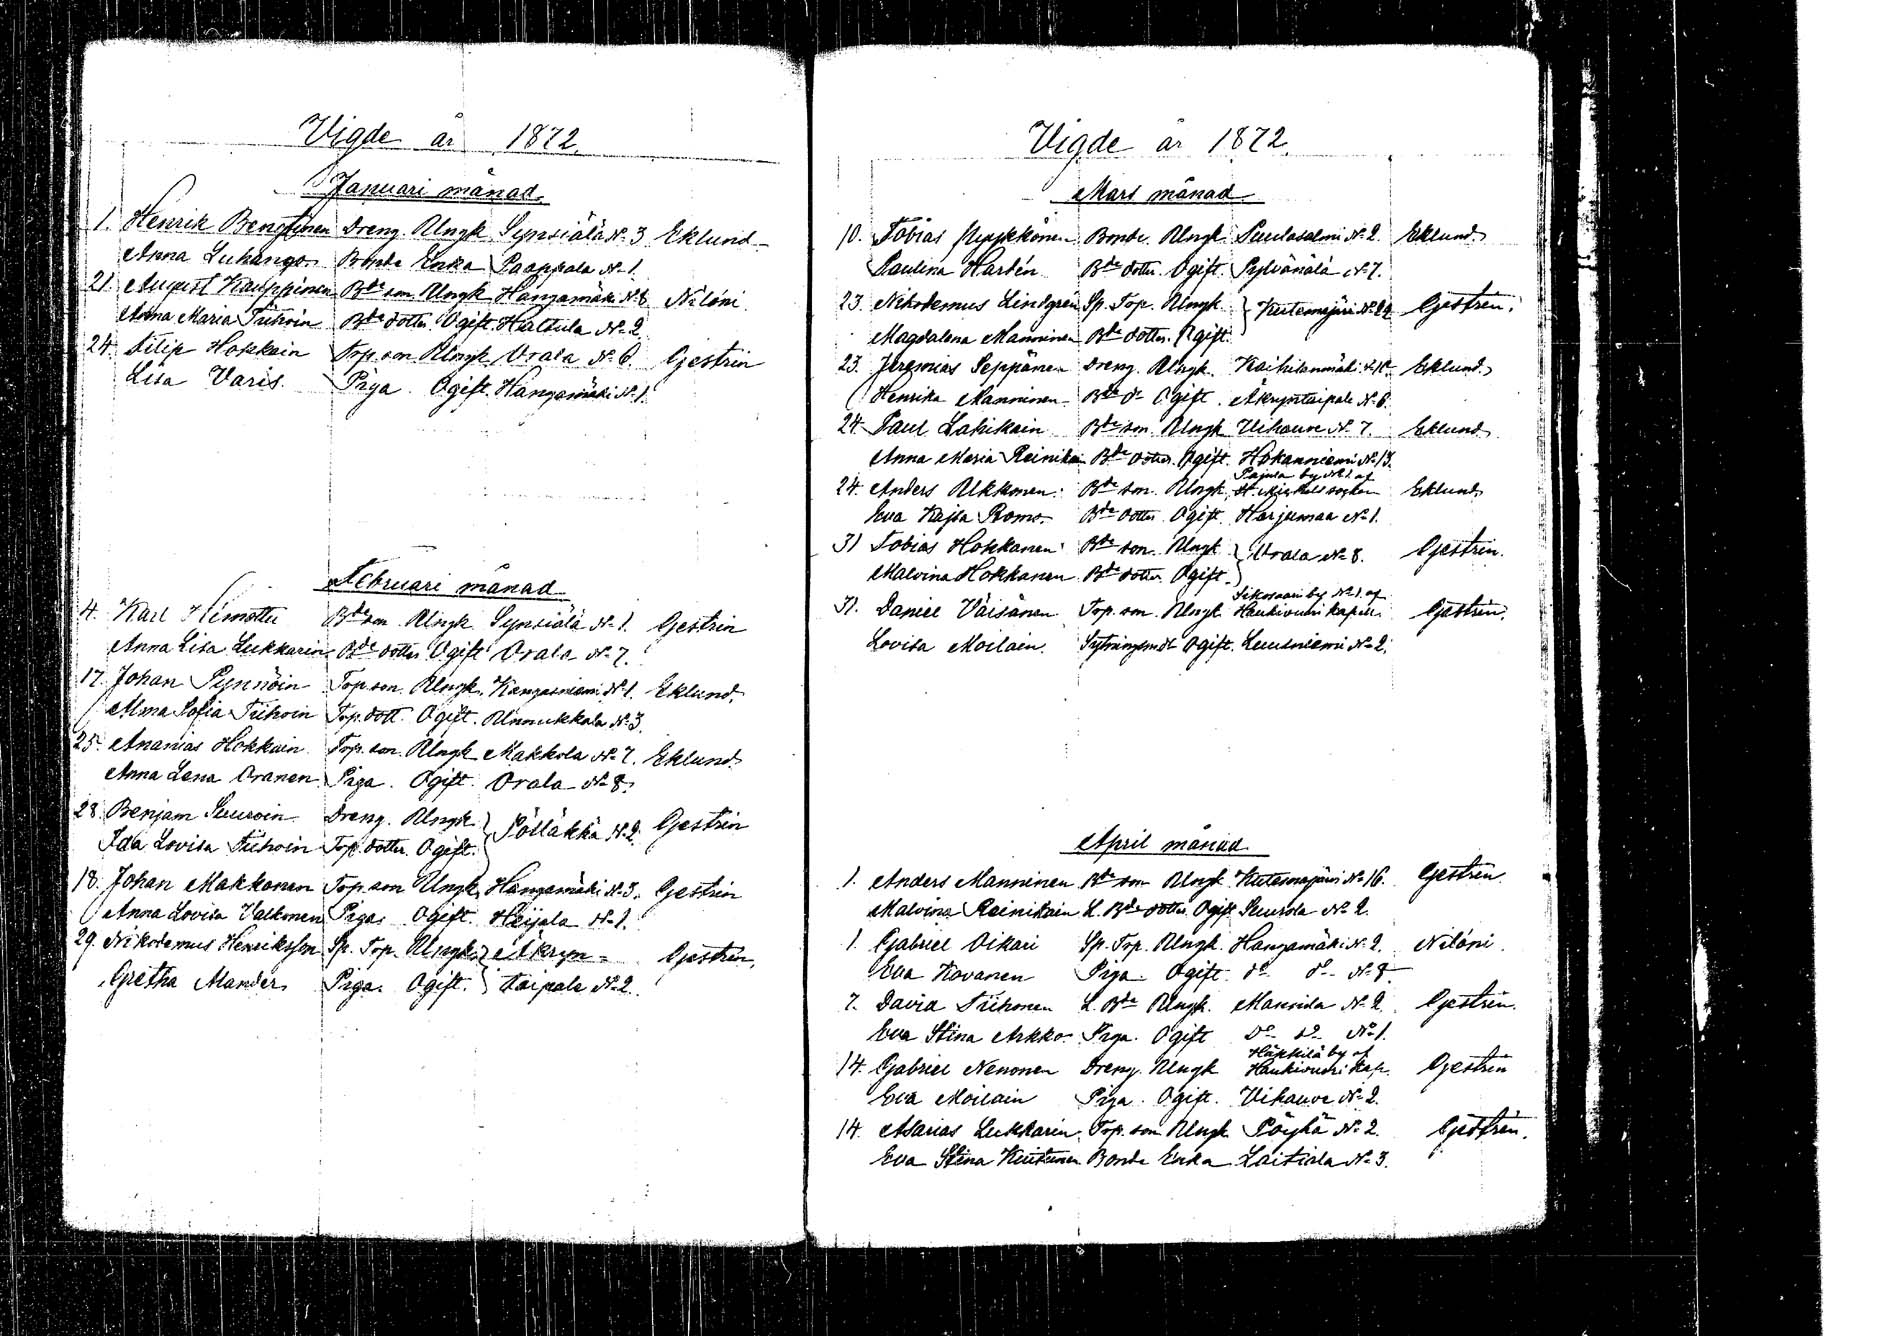 Vigde år 1872.
Januari månad.
1. Henrik Bengtinen Dreng Ungk Synsiälä N:o 3 Eklund
Anna Luhanga Bonde Enka Paappala N:o 1.
21 August Kauppinen Bde son Ungk Hangamäki N:o 8 Niloni
Anna Maria Tiihoin Bde dotter Ogift Hirtula N:o 2
24. Filip Hokkain Torp. son Ungk Orala N:o 6 Gestrin
Lisa Varis Piga Ogift Hangamäki N:o 1.
Februari månad
4. Karl Himottu Bde son Ungk Synsiälä N:o 1. Gestrin
Anna Lisa Lukkarin Bde dotter Ogift Orala N:o 7.
17. Johan Pynnöin Torp. son. Ungk. Kangasniemi N:o 1. Eklund.
Alma Sofia Tiihoin Torp. dott. Ogift. Unnukkala N:o 3
25. Ananias Hokkain Torp. son. Ungk Makkola N:o 7. Eklund
Anna Lena Oranen Piga. Ogift. Orala N:o 8.
28. Benjam Suuroin Dreng. Ungk. Pölläkkä N:o 2. Gestrin
Ida Lovisa Tiihoin Torp. dotter Ogift.
18. Johan Makkonen Torp. son Ungk Hangamäki N:o 3. Gestrin
Anna Lovisa Valkonen Piga. Ogift. Heijala N:o 1.
29. Nikodemus Henriksson Sp. Torp. Ungk. Äkryn=
Gretha Mander Piga. Ogift. taipale N:o 2. Gestrin.
Vigde år 1872.
Mars månad
10. Tobias Pyykkönen Bonde. Ungk. Puulasalmi N:o 2. Eklund
Paulina Hardén Bde dotter Ogift. Pylvänälä N:o 7.
23. Nikodemus Lindgren Sp. Torp. Ungk. Kutemajärvi N:o 24 Gestrin.
Magdalena Manninen Bde dotter. Ogift.
23. Jeremias Seppänen Dreng. Ungk. Kaihilanmäki N:o 10. Eklund
Henrika Manninen Bde do Ogift. Äkryntaipale N:o 6.
24. Paul Lahikain Bde son. Ungk Vihavue N:o 7. Eklund
Anna Maria Reinikai Bde dotter. Ogift. Hokanniemi N:o 13.
Pajula by N:o 1 af
24. Anders Ukkonen Bde son. Ungk St. Michels socken Eklund
Eva Kajsa Romo Bde dotter Ogift. Harjumaa N:o 1.
31 Tobias Hokkanen Bde son. Ungk Orala N:o 8. Gestrin.
Malvina Hokkanen Bde dotter Ogift.
by N:o 1. af
31. Daniel Väisänen Torp. son. Ungk Haukivuori kapell. Gestrin.
Lovisa Moilain. Ogift. Luusniemi N:o 2.
April månad.
1. Anders Manninen Bde son Ungk Kutemajärvi N:o 16. Gestrin
Malvina Reinikain L. Bde dotter Ogift Suurola N:o 2.
1. Gabriel Oikari Sp. Torp. Ungk. Hangamäki N:o 2. Niloni.
Eva Kovanen Piga Ogift. do do N:o 8
7. David Tiihonen L. Bde Ungk. Mannila N:o 2. Gestrin.
Eva Stina Arkko Piga. Ogift do do N:o 1.
Häkkilä by af
14. Gabriel Nenonen Dreng. Ungk Haukivuori kap. Gestrin
Eva Moilain Piga. Ogift. Vihavue N:o 2.
14. Asarias Lukkarin Torp. son Ungk Pöyhä N:o 2. Gestrin.
Eva Stina Kuitunen Bonde Enka Laitiala N:o 3.